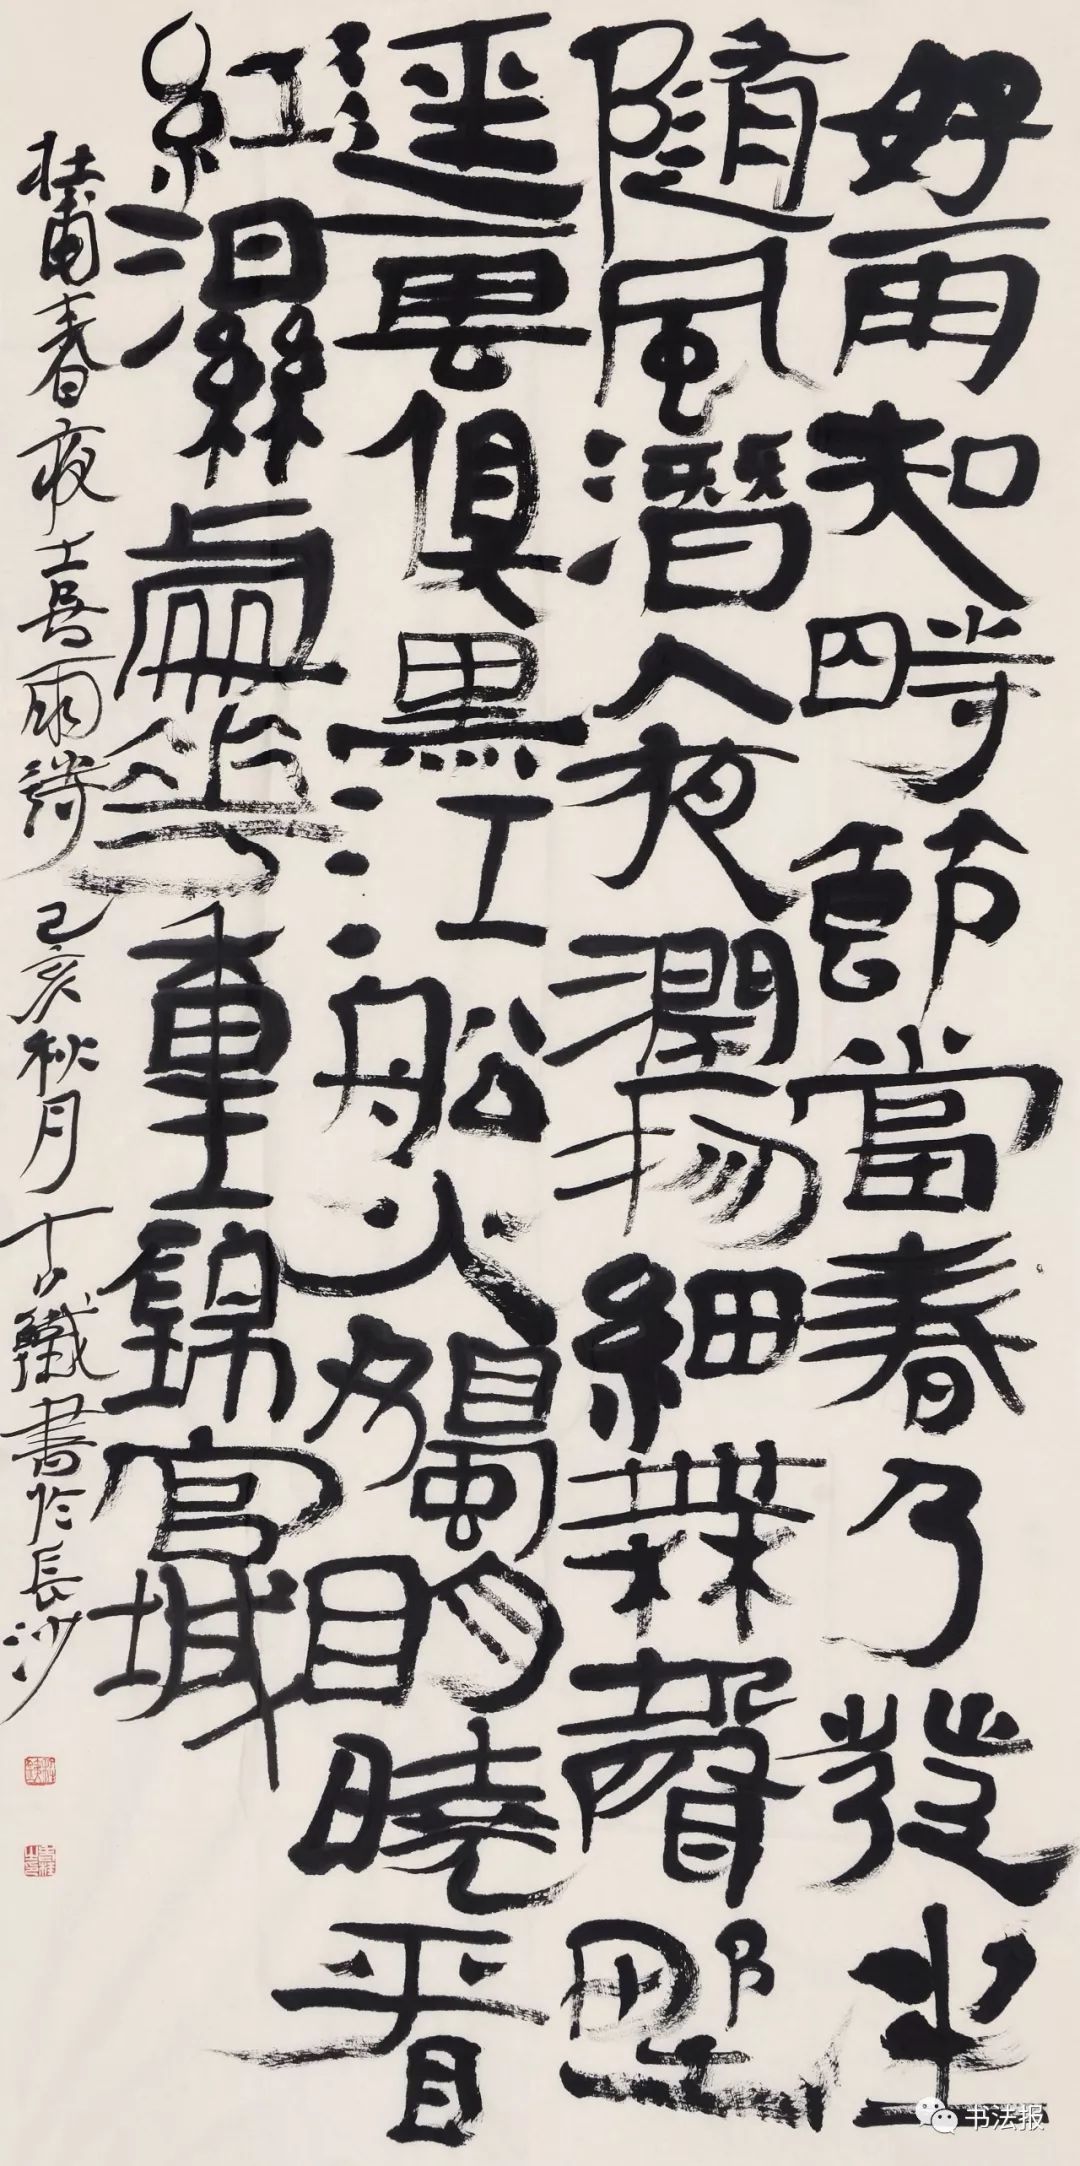 好雨知時節當春乃發生
隨風潛入夜潤物細無聲野
逕雲俱黑江船火獨明曉看
紅濕處華重錦官城
杜甫春夜喜雨詩 己亥秋月 鐵書於長沙
书法报